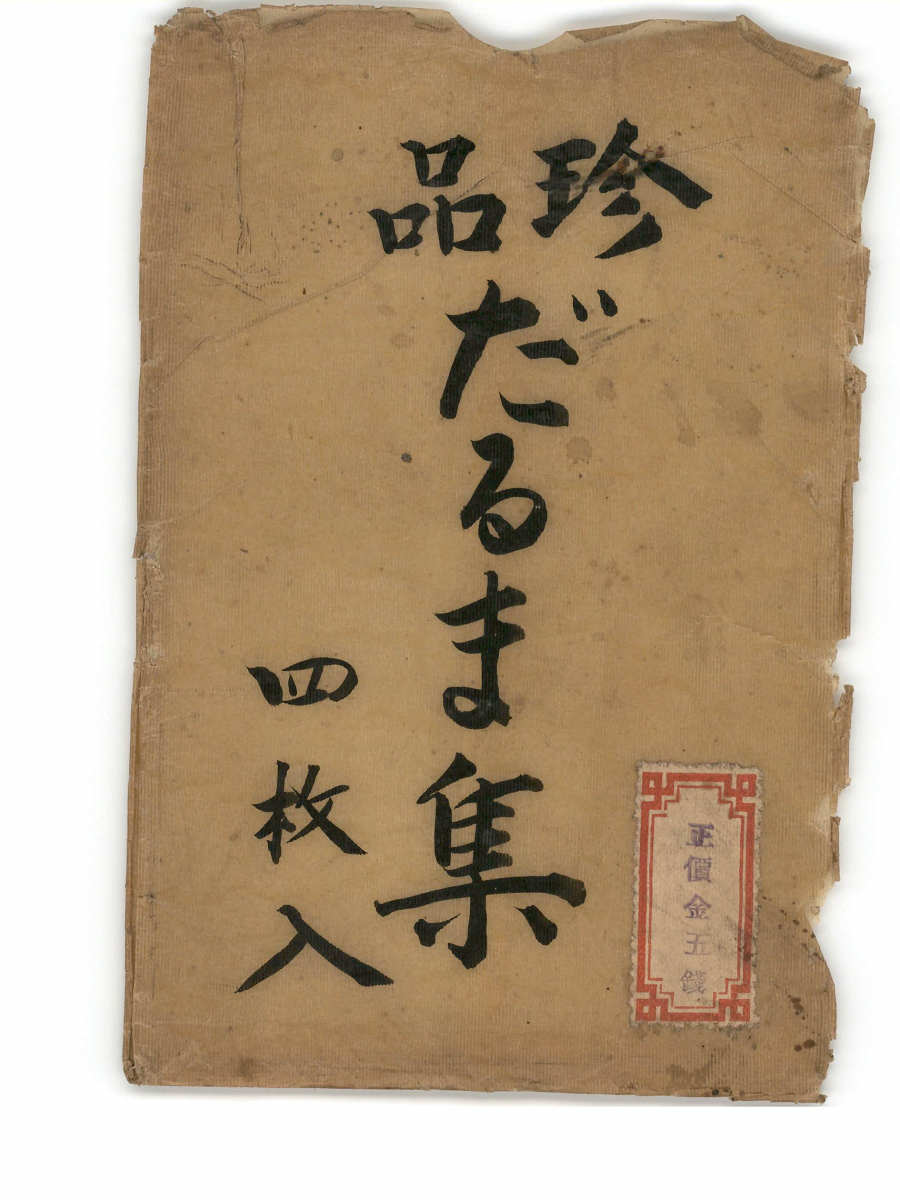 珍品
だるま集
四枚入
正價金五錢